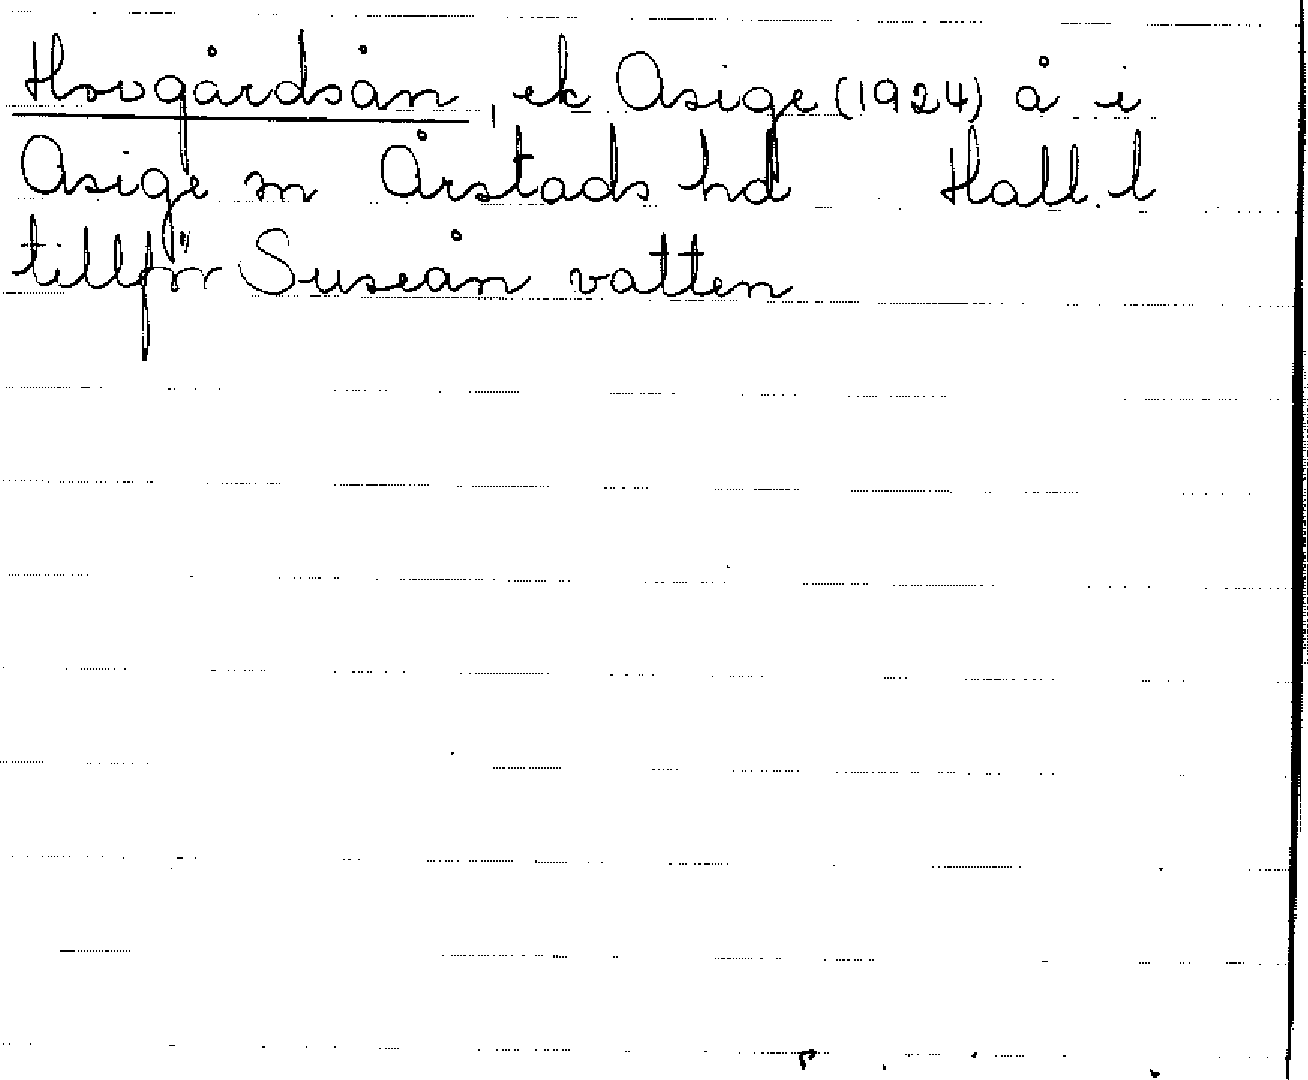 Hovgårdsån, ek Asige (1924) å i
Asige sn Årstads hd Hall. l
tillför Suseån vatten